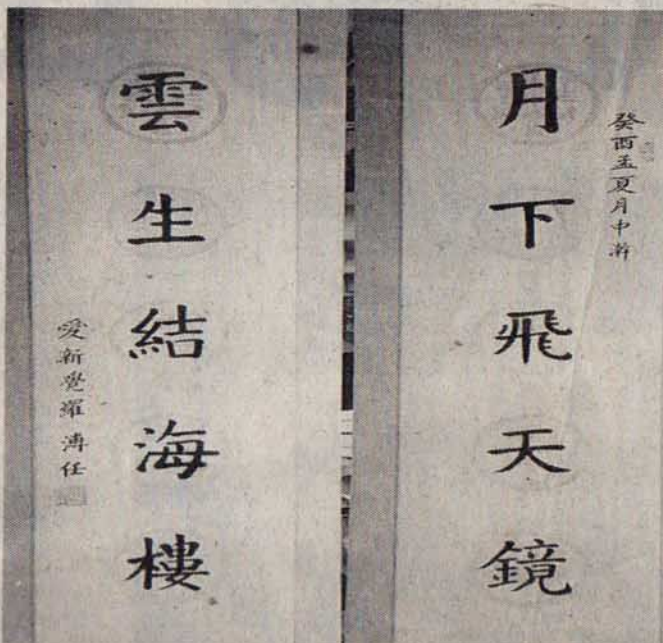 癸酉孟夏月中澣
月下飛天鏡
雲生結海樓
愛新覺羅 溥任